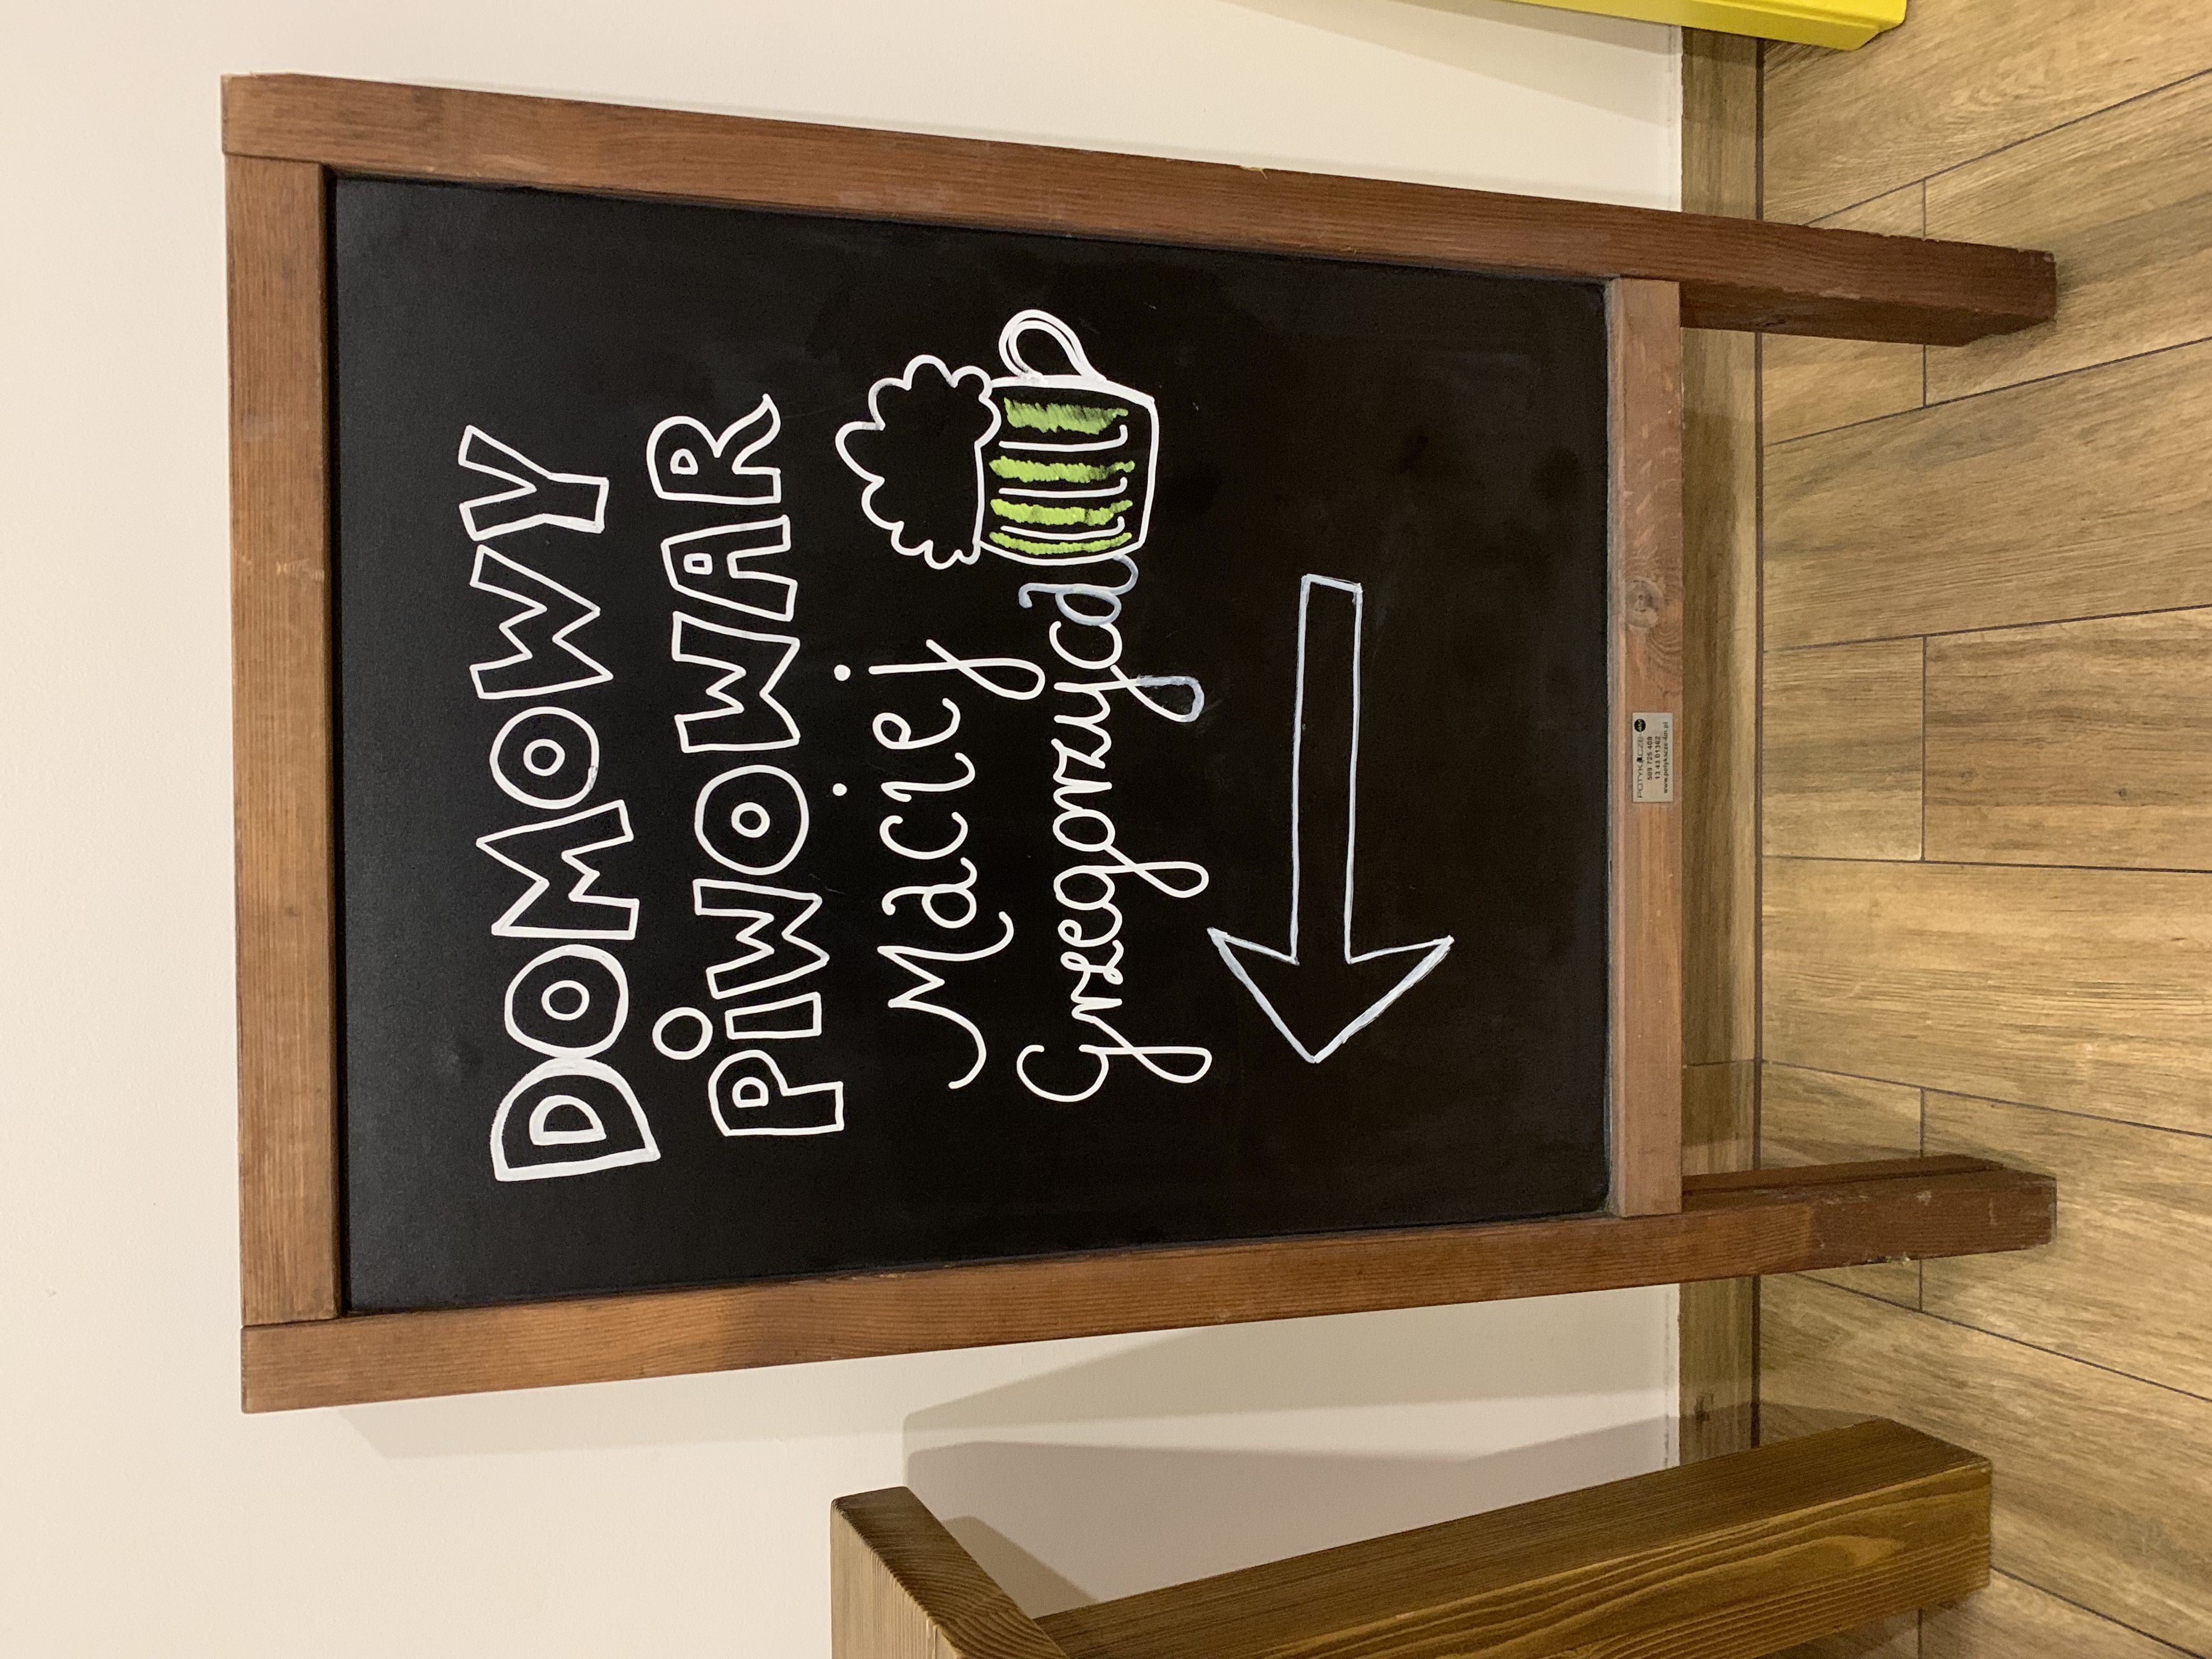 DOMOWY
PiWOWAR
Maciej
Grzegorzyca
POTYKACZE 4M
509 725 408
13 43 01362
www.potykacze-4m.pl